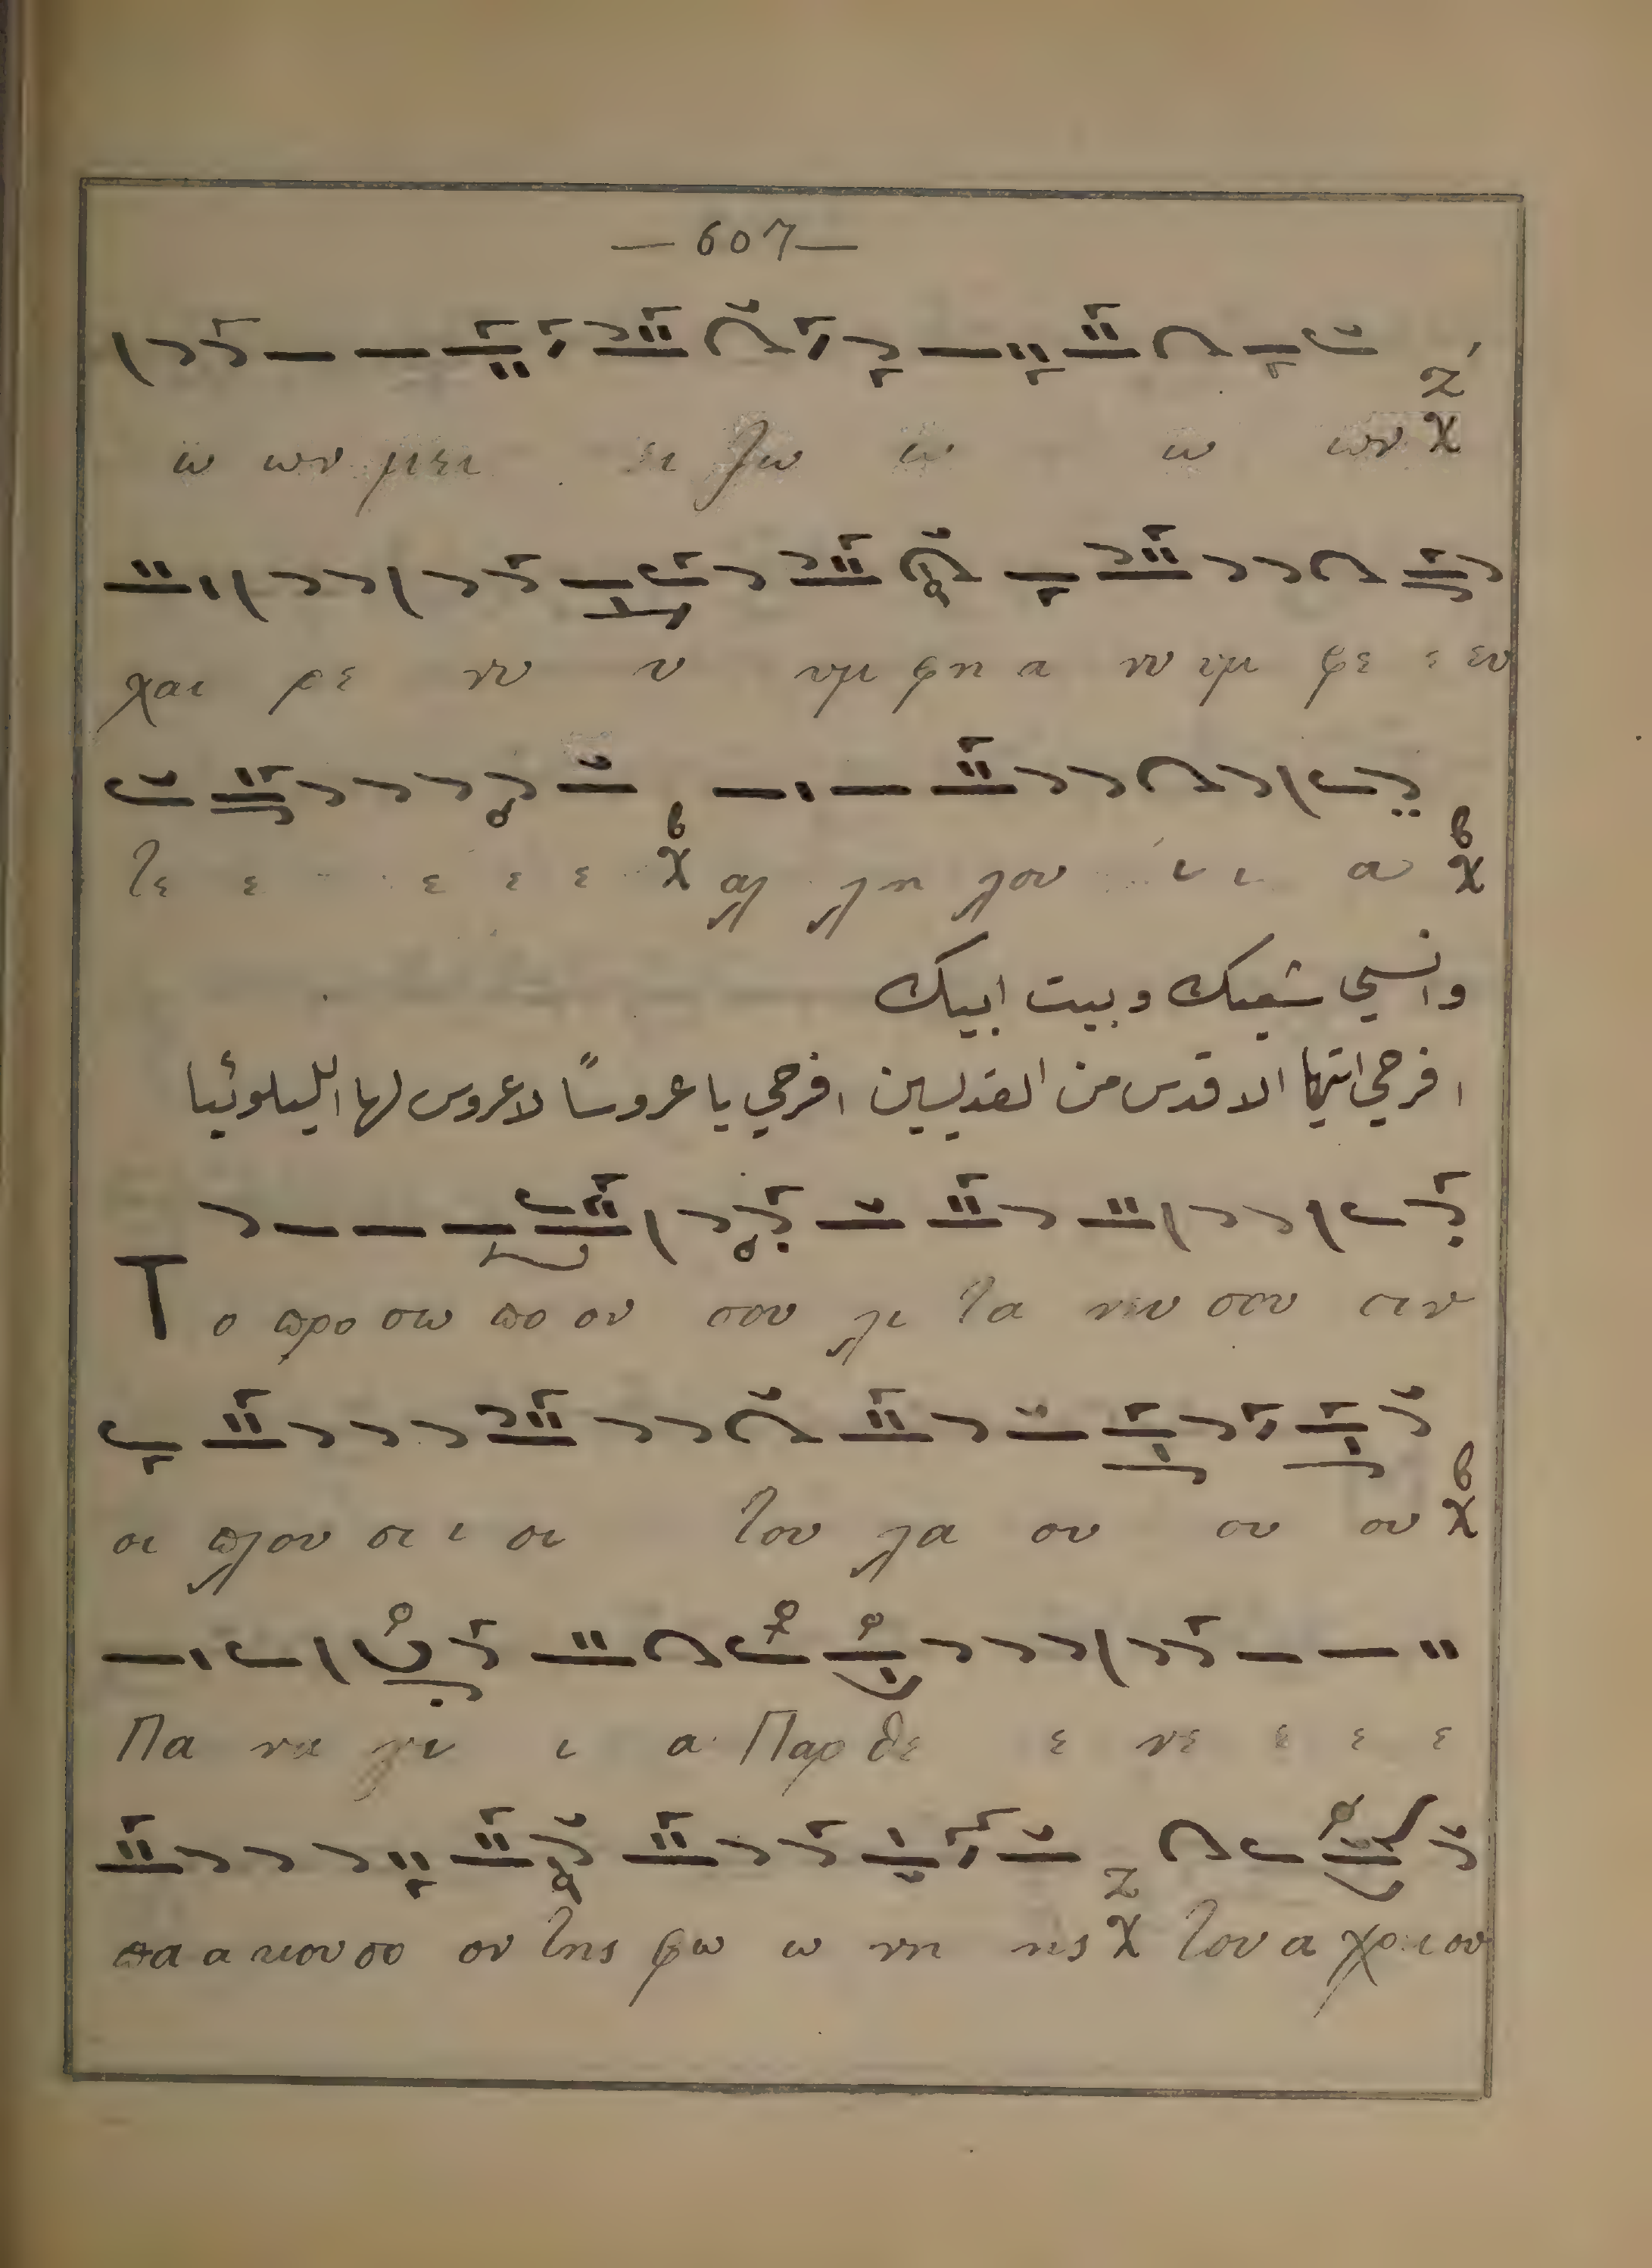 — 607 —
ω ων μει ει ζω ω ω ων χ
χαι ρε νυ υ υμ φη α νυ υμ φε ε ευ
τε ε ε ε ε χ αλ λη λου ι ι α χ
وانسي شعبك وبيت ابيك
افرحي ايتها الاقدس من القديسين افرحي يا عروسًا لا عروس لها الليلوئيا
Το προ σω πο ον σου λι τα νευ σου σιν
οι πλου σι ι οι του λα ου ου ου χ
Πα να γι ι α Παρ θε ε νε ε ε ε
πα α κου σο ον της φω ω νη ης χ του α χρει ου